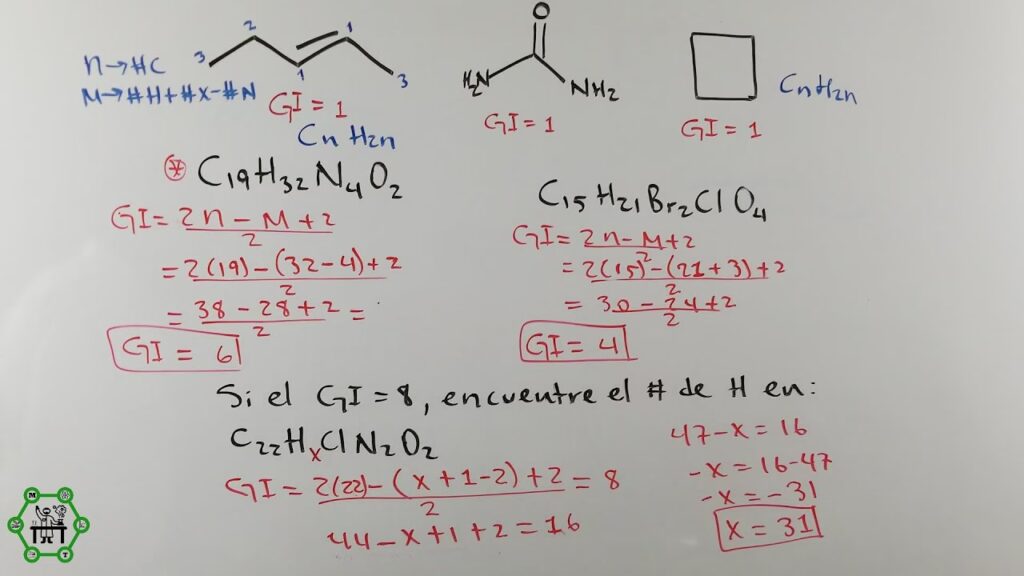 2
1
3
1
3
n→#C
M→#H+#X-#N
GI=1
CnH2n
O
H2N
NH2
GI=1
CnH2n
GI=1
* C19H32N4O2
GI= 2n-M+2
2
= 2(19)-(32-4)+2
2
= 38-28+2 =
2
GI= 6
C15H21Br2ClO4
GI= 2n-M+2
2
= 2(15)-(21+3)+2
2
= 30-24+2
2
GI= 4
Si el GI=8, encuentre el # de H en:
C22HxClN2O2
GI= 2(22)-(x+1-2)+2 = 8
2
44-x+1+2=16
47-x=16
-x=16-47
-x=-31
x=31
M
T